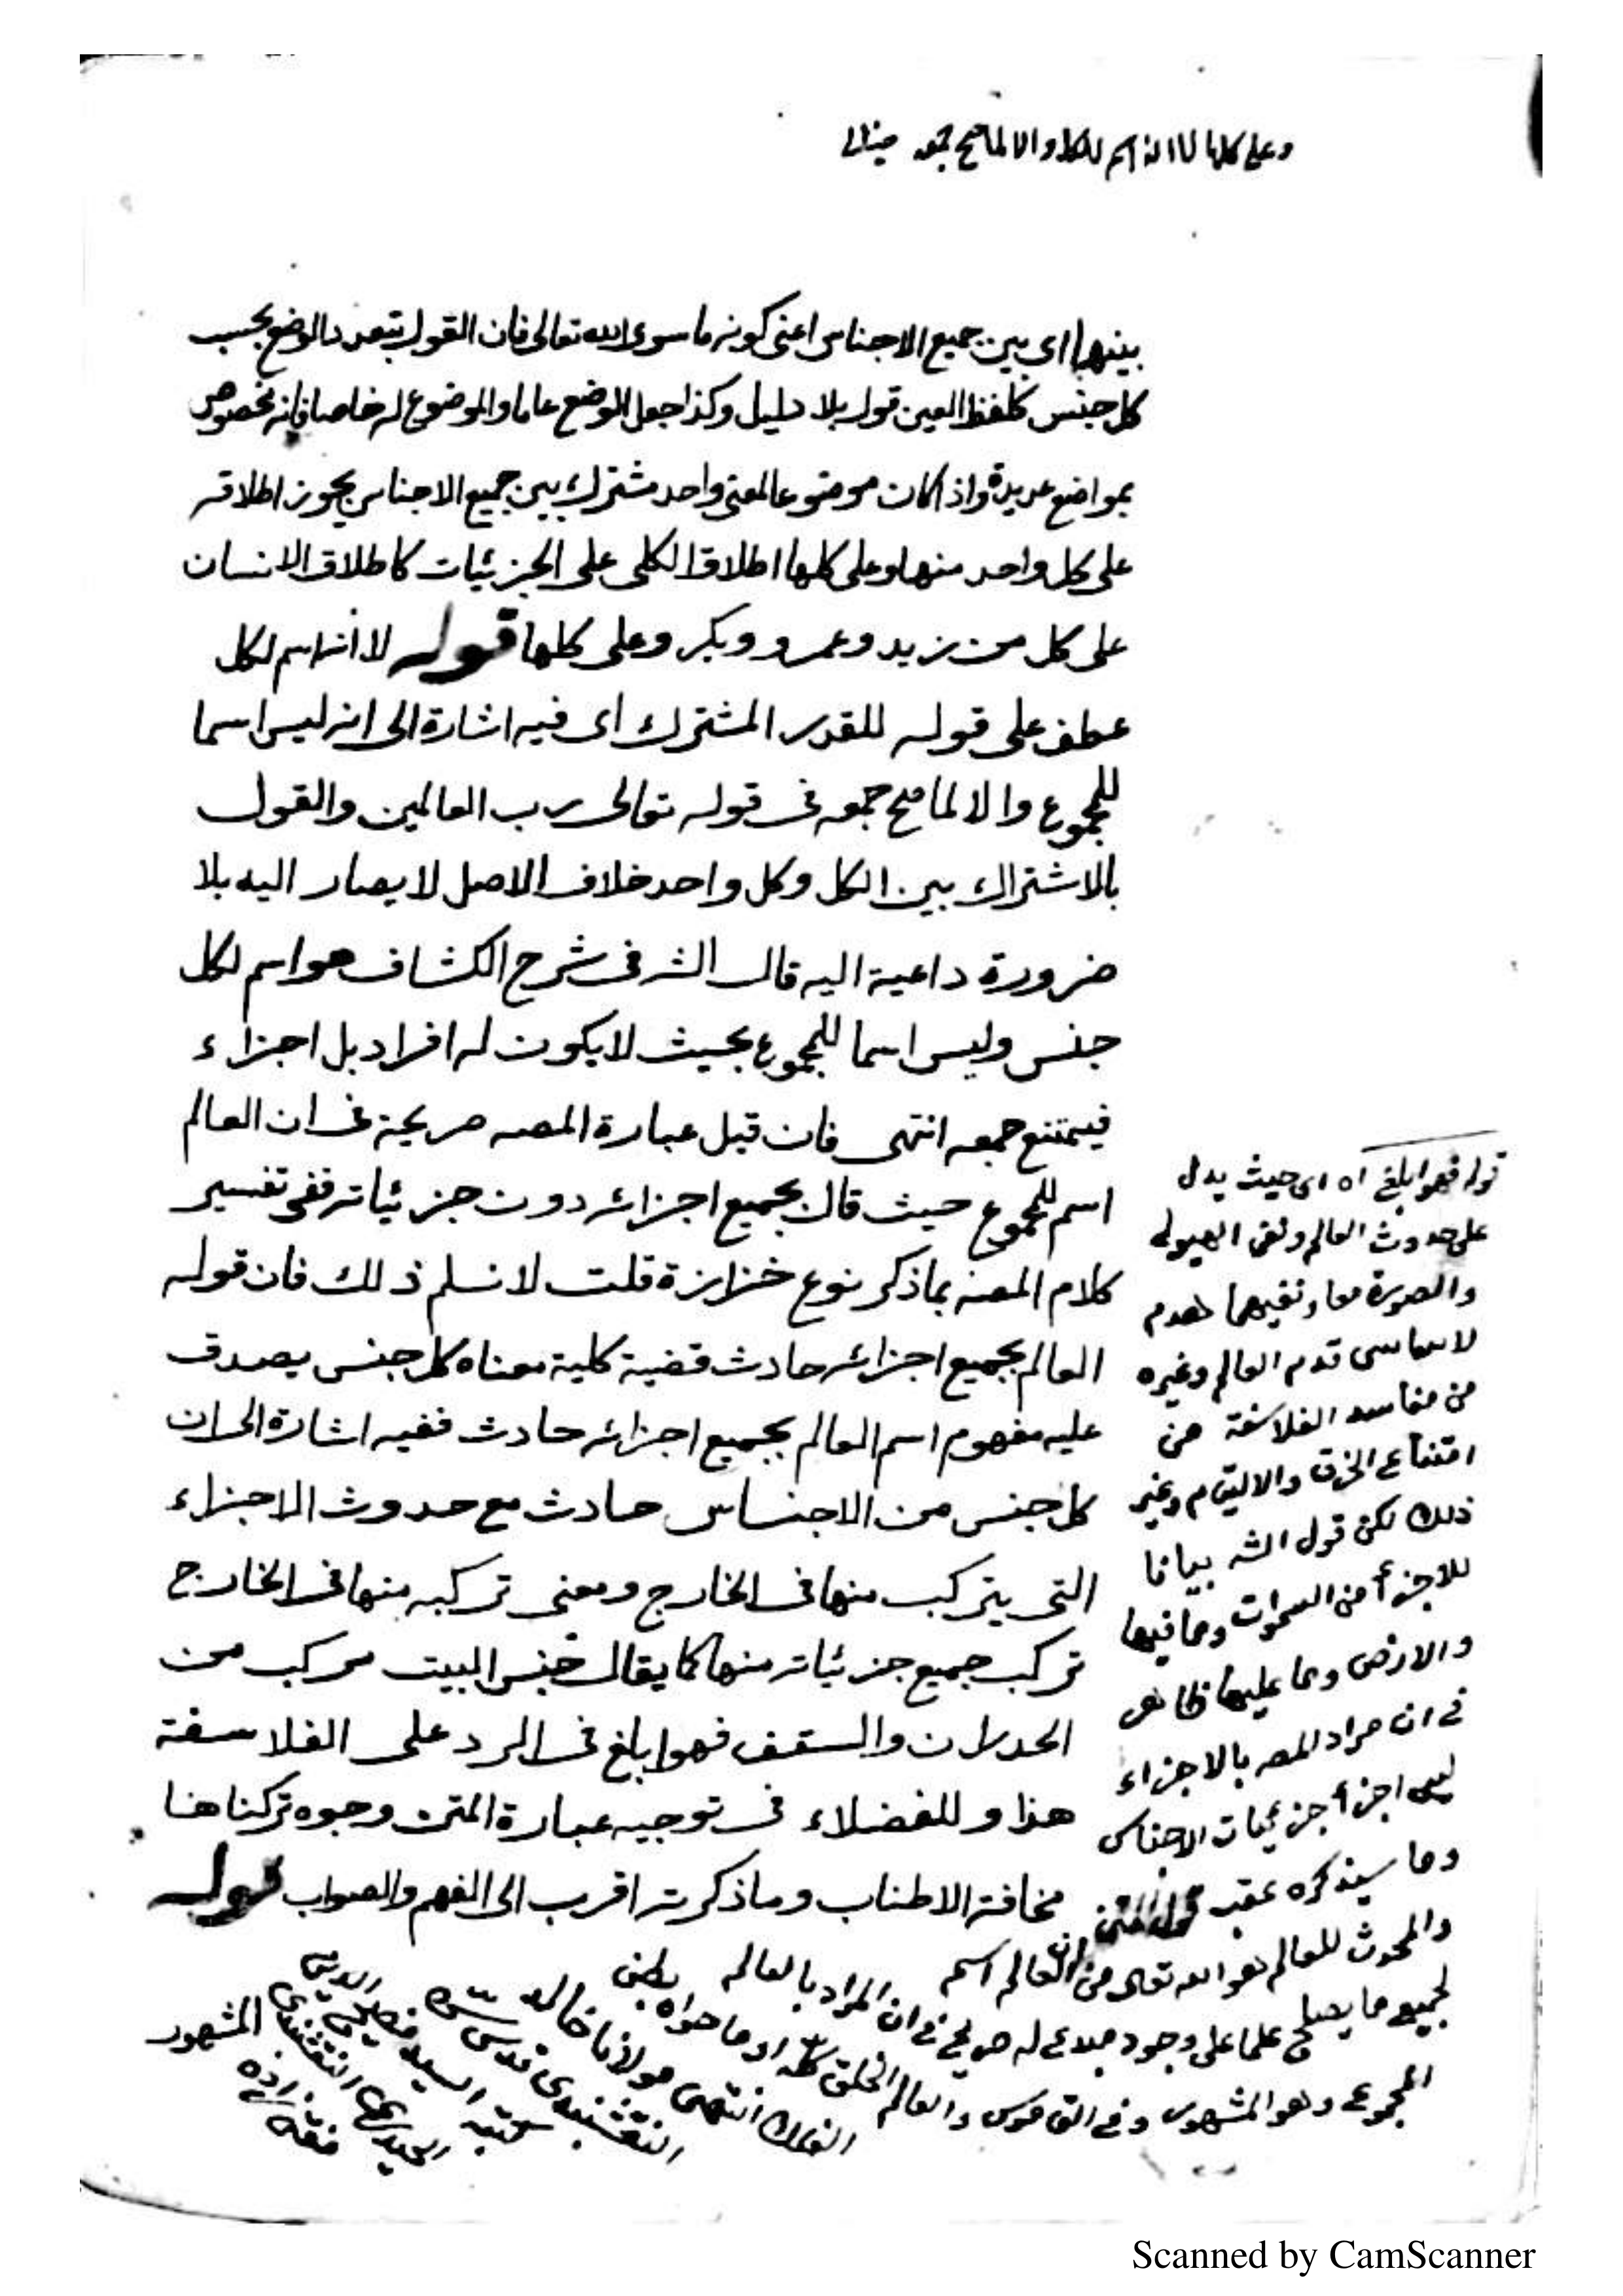 وعلى كلها لا انه اسم للكل والا لما صح جمعه
بينها اى بين جميع الاجناس اعنى كونه ما سوى الله تعالى فان القول بتعدد الوضع بحسب
كل جنس كلفظ العين قول بلا دليل وكذا جعل الوضع عاما والموضوع له خاصا فانه مخصوص
بمواضع عديدة واذا كان موضوعا لمعنى واحد مشترك بين جميع الاجناس يجوز اطلاقه
على كل واحد منها وعلى كلها اطلاق الكلى على الجزئيات كاطلاق الانسان
على كل من زيد وعمرو وبكر وعلى كلها قوله لا انه اسم لكل
عطف على قوله للقدر المشترك اى فيه اشارة الى انه ليس اسما
للمجموع والا لما صح جمعه فى قوله تعالى رب العالمين والقول
بالاشتراك بين الكل وكل واحد خلاف الاصل لا يصار اليه بلا
ضرورة داعية اليه قال الشه فى شرح الكشاف هو اسم لكل
جنس وليس اسما للمجموع بحيث لا يكون له افراد بل اجزاء
فيمتنع جمعه انتهى فان قيل عبارة المصه صريحة فى ان العالم
اسم للمجموع حيث قال بجميع اجزائه دون جزئياته ففى تفسير
كلام المصه بما ذكر نوع حزازة قلت لا نسلم ذلك فان قوله
العالم بجميع اجزائه حادث قضية كلية معناه كل جنس يصدق
عليه مفهوم اسم العالم بجميع اجزائه حادث ففيه اشارة الى ان
كل جنس من الاجناس حادث مع حدوث الاجزاء
التى يتركب منها فى الخارج ومعنى تركبه منها فى الخارج
تركب جميع جزئياته منها كما يقال جنس البيت مركب من
الجدران والسقف فهو ابلغ فى الرد على الفلاسفة
هذا وللفضلاء فى توجيه عبارة المتن وجوه تركناها
مخافة الاطناب وما ذكرته اقرب الى الفهم والصواب قوله
قوله فهو ابلغ اه اى حيث يدل
على حدوث العالم ونفى الهيولى
والصورة معا ونفيهما هدم
قدم العالم وغيره
من مفاسد الفلاسفة من
امتناع الخرق والالتيام وغير
ذلك لكن قول الشه بيانا
للاجزأ من السموات وما فيها
والارض وما عليها ظاهر
فى ان مراد المصه بالاجزاء
ليس اجزأ جزئيات الاجناس
وما سيذكره عقب
والمحدث للعالم هو الله تعالى من ان العالم اسم
لجميع ما يصلح علما على وجود مبدء له صريح فى ان المراد بالعالم
المجموع وهو المشهور وفى القاموس والعالم الخلق كله او ما حواه بطن
الفلك انتهى مولانا خالد
النقشبندى قدس سره
كتبه السيد فصيح الدين
الحيدرى النقشبندى المشهور